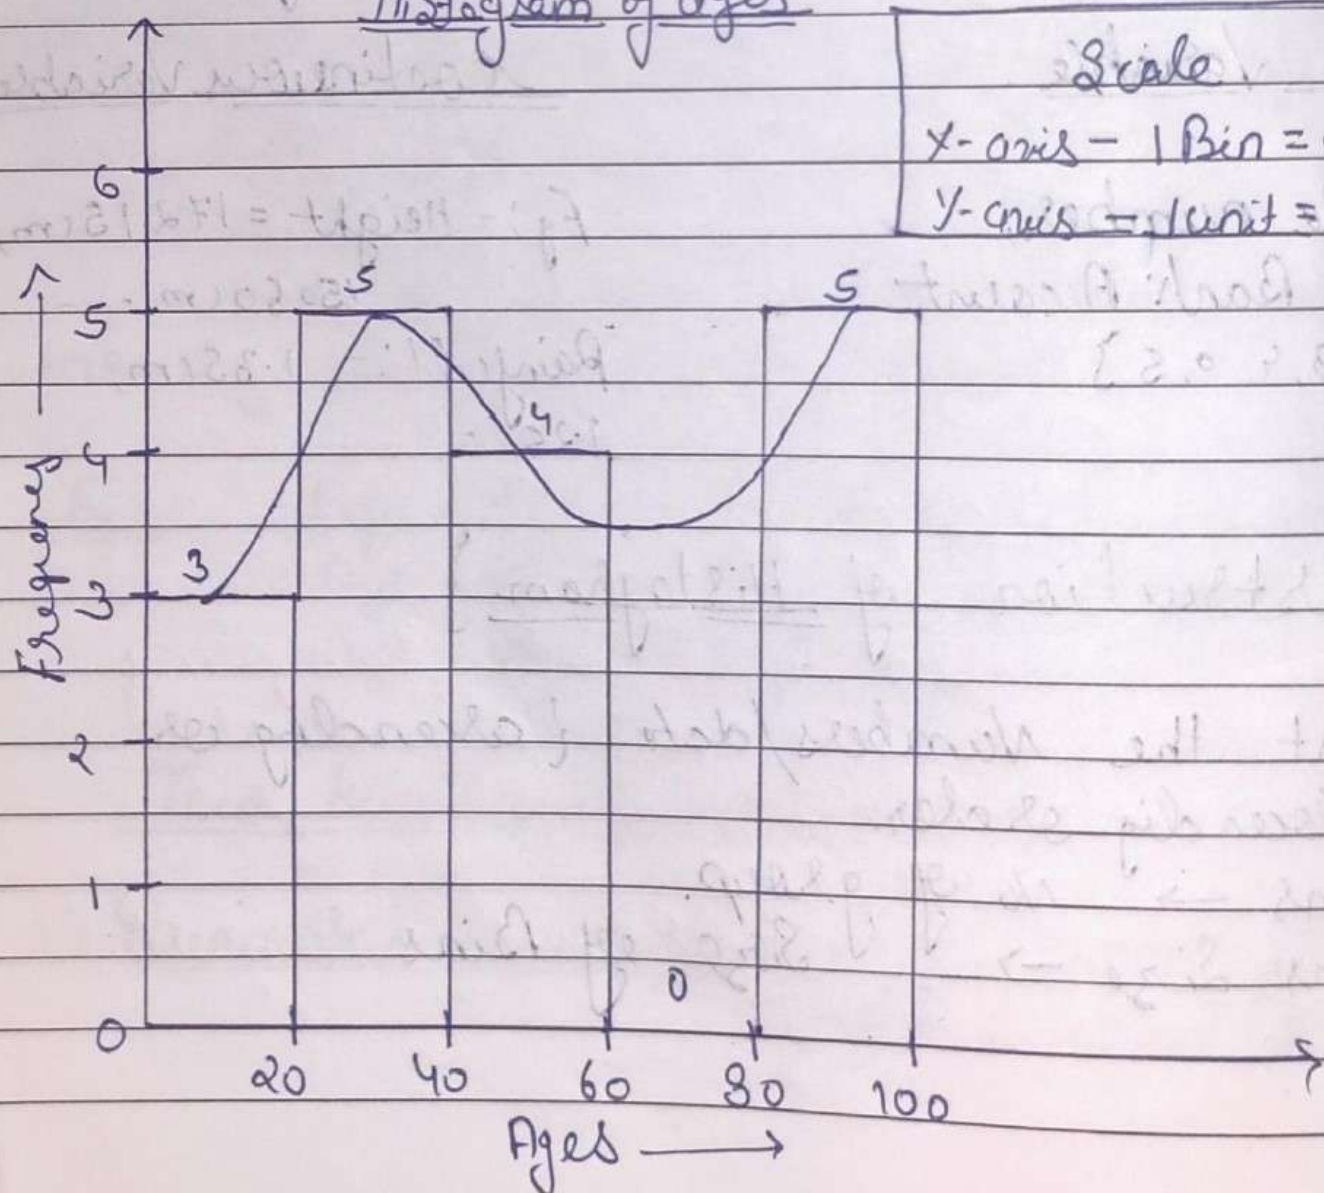 Histogram of Ages
Scale
X-axis - 1 Bin =
Y-axis - 1 unit =
6
5
5
5
4
4
Frequency
3
3
2
1
0
0
20 40 60 80 100
Ages